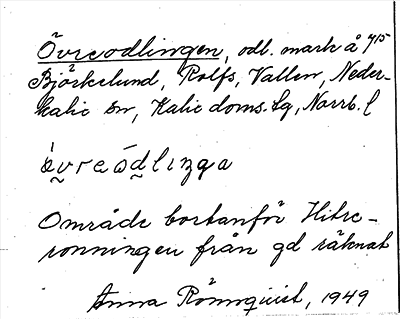 Övreodlingen, odl. mark å 4/15
Björkelund, Rolfs, Vallen, Neder-
kalix sn, Kalix doms. lg, Norrb. l
övreòdlinga
Område bortanför Hitre-
ronningen från gd räknat
Anna Rönnquist, 1949